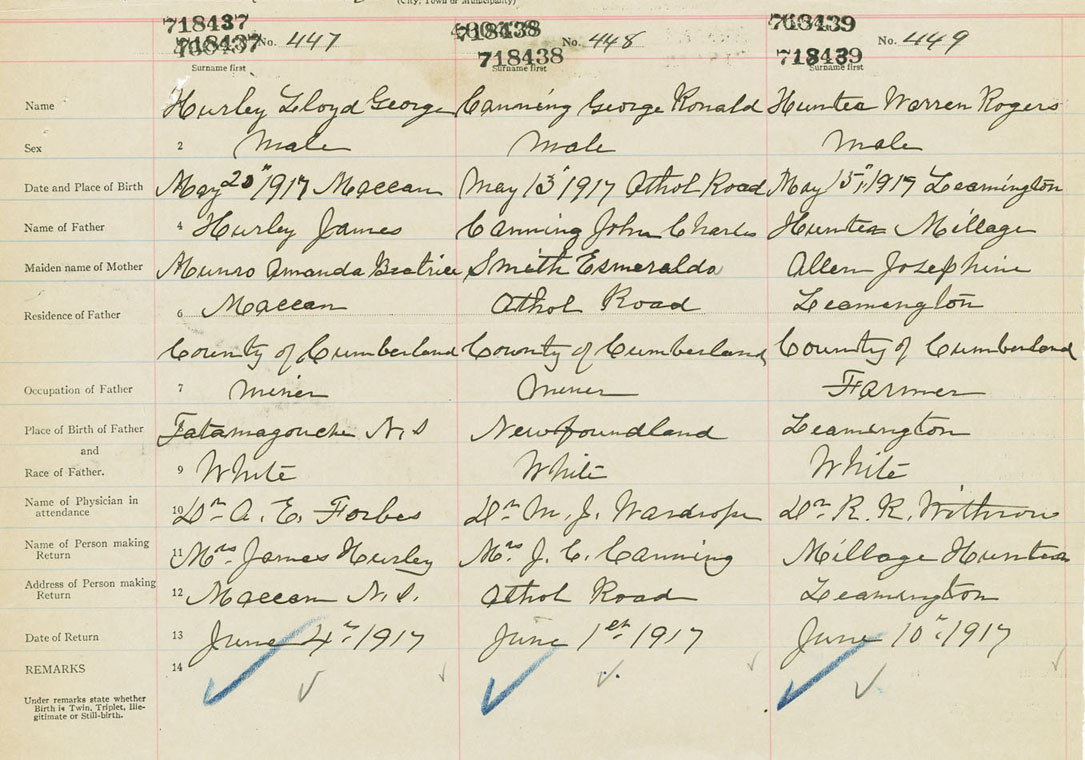 (City, Town or Municipality)
718437 718438 718439
718437 No. 447 718438 No. 448 718439 No. 449
Surname first Surname first Surname first
Name Hurley Lloyd George Canning George Ronald Hunter Warren Rogers
Sex 2 Male Male Male
Date and Place of Birth May 20" 1917 Maccan May 13" 1917 Athol Road May 15" 1917 Leamington
Name of Father 4 Hurley James Canning John Charles Hunter Millage
Maiden name of Mother Munro Amanda Beatrice Smith Esmeralda Allen Josephine
Residence of Father 6 Maccan Athol Road Leamington
County of Cumberland County of Cumberland County of Cumberland
Occupation of Father 7 Miner Miner Farmer
Place of Birth of Father Tatamagouche N.S Newfoundland Leamington
and
Race of Father. 9 White White White
Name of Physician in attendance 10 Dr A. E. Forbes Dr M. J. Wardrope Dr R. R. Withrow
Name of Person making Return 11 Mrs James Hurley Mrs J. C. Canning Millage Hunter
Address of Person making Return 12 Maccan N.S. Athol Road Leamington
Date of Return 13 June 4" 1917 June 1st 1917 June 10" 1917
REMARKS 14
Under remarks state whether
Birth is Twin, Triplet, Ille-
gitimate or Still-birth.